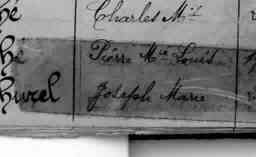 hé Charles M.te
hé Pierre M.ie Louis
hurel Joseph Marie